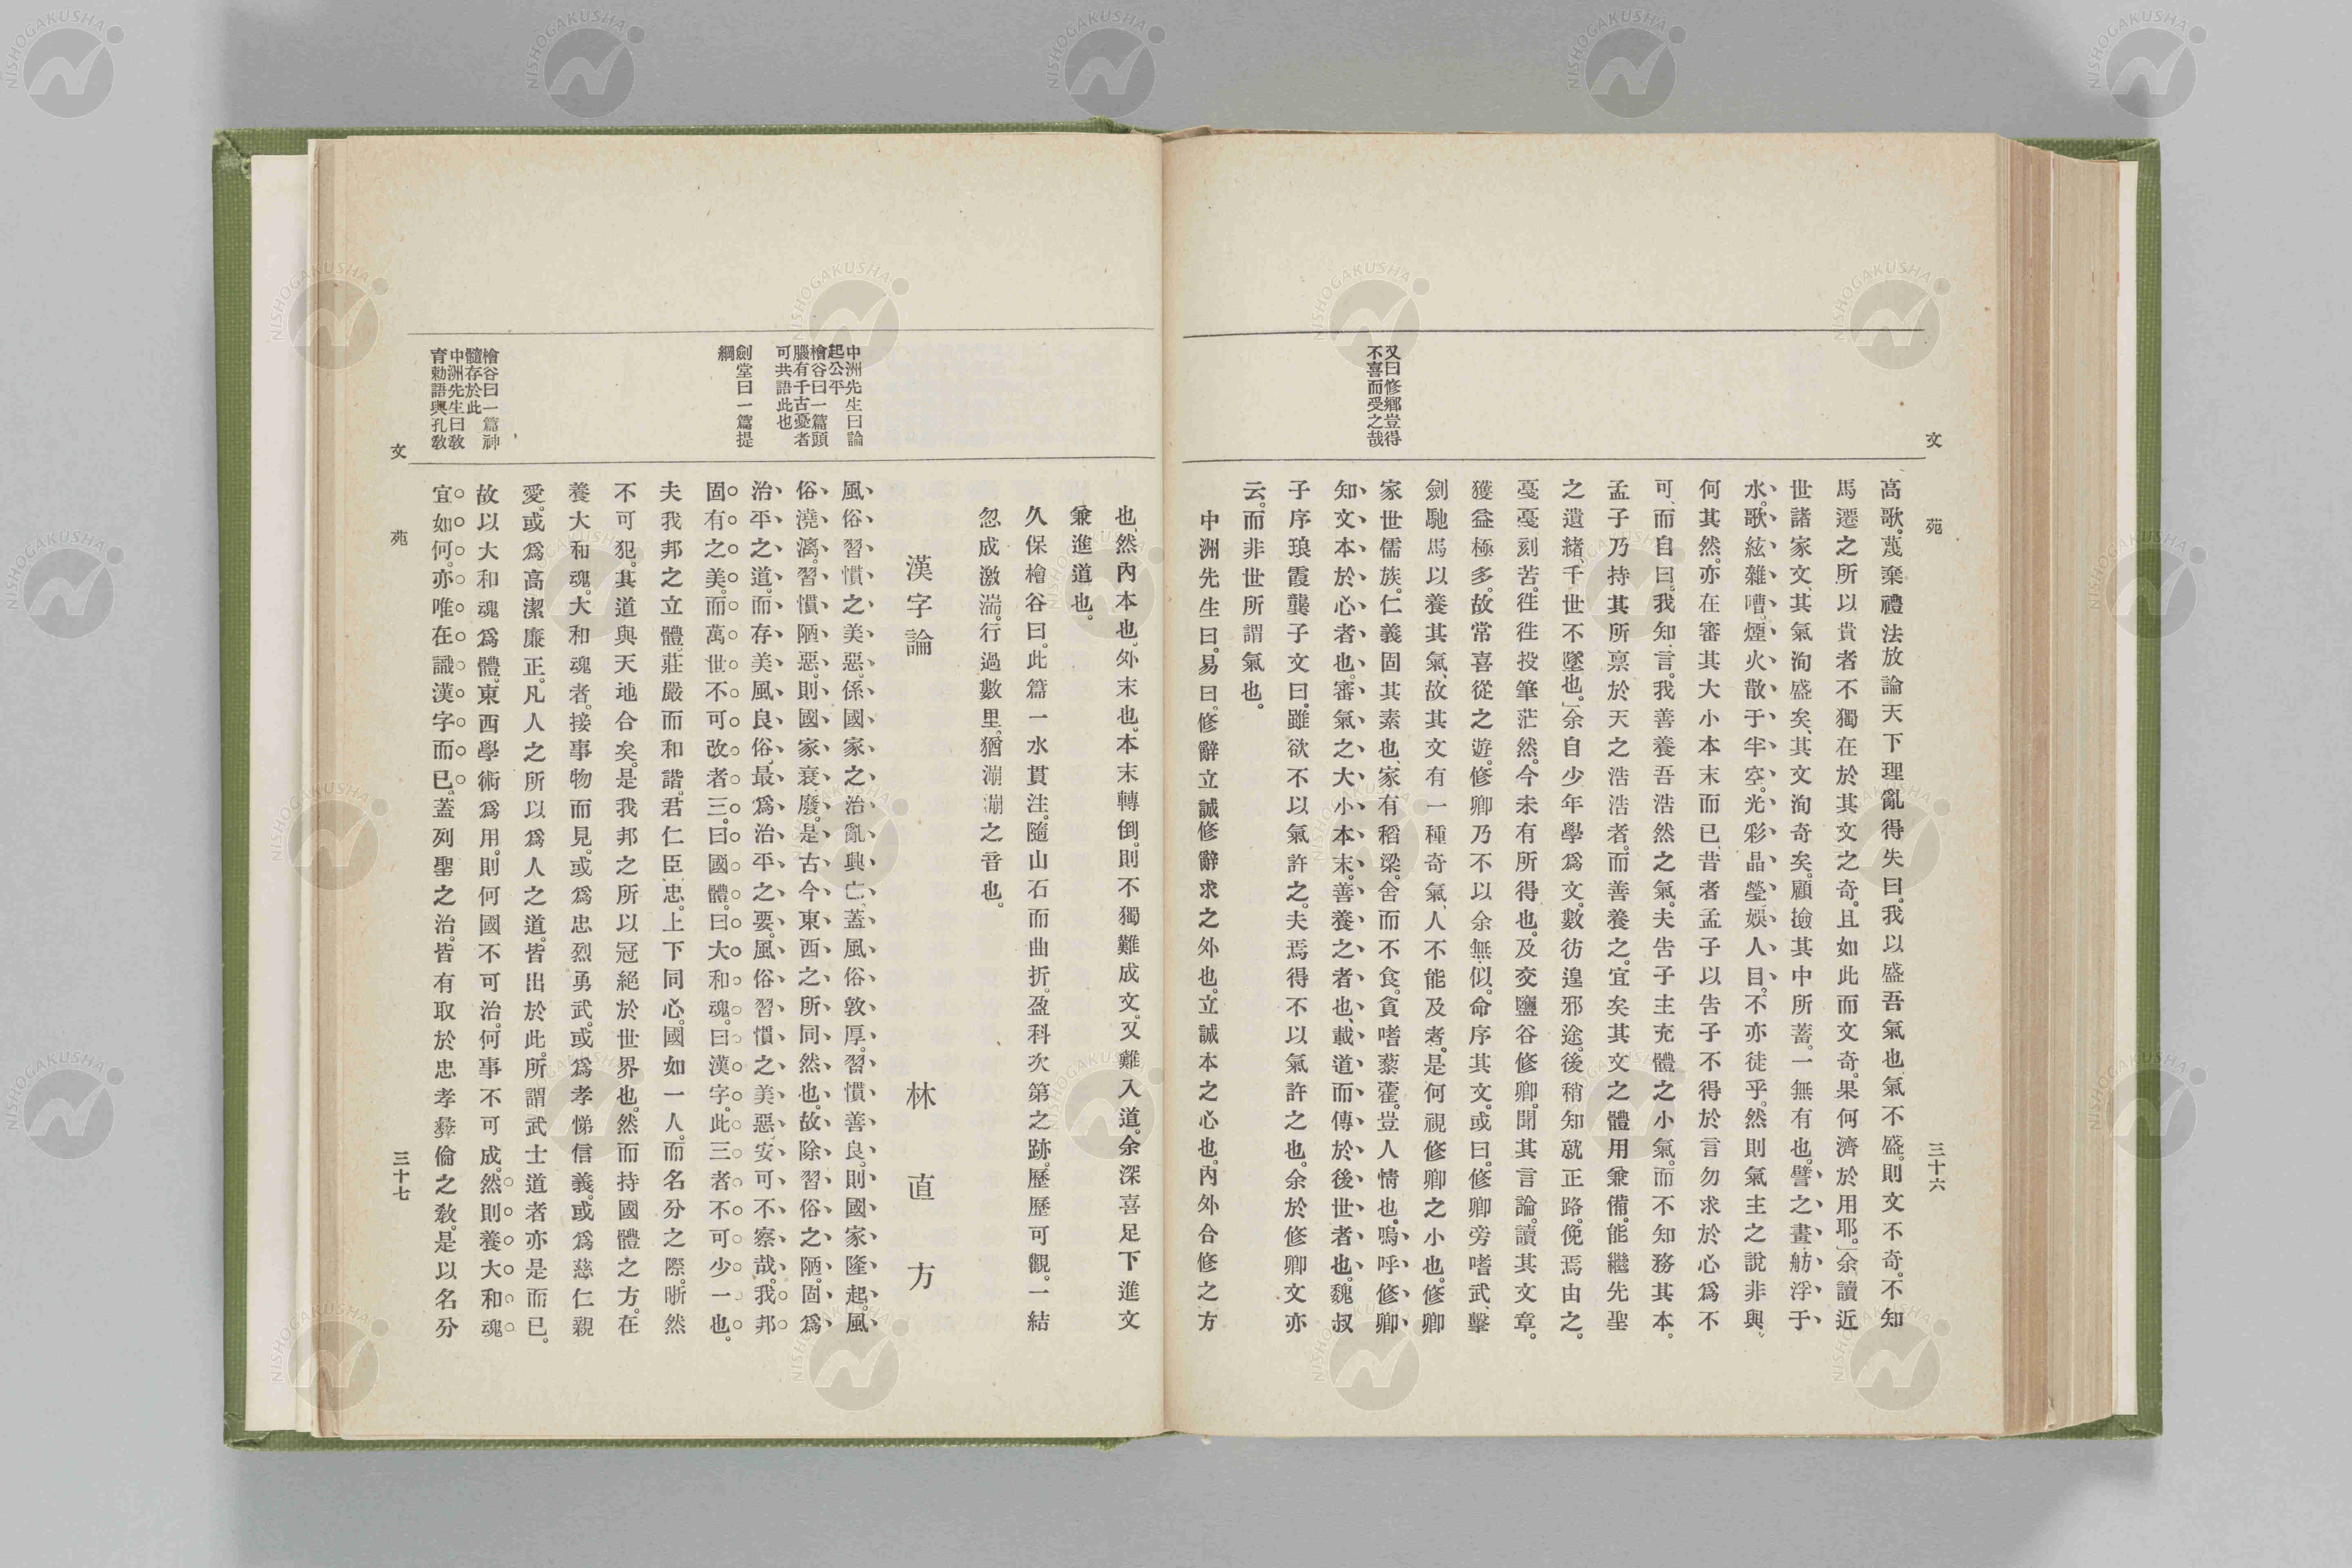 文
苑
三十六
又曰修鄉豈得
不喜而受之哉
高歌。蔑棄禮法放論天下理亂得失曰。我以盛吾氣也、氣不盛。則文不奇。不知
馬遷之所以貴者不獨在於其文之奇。且如此而文奇。果何濟於用耶。」余讀近
世諸家文、其氣洵盛矣、其文洵奇矣。顧撿其中所蓄。一無有也。譬之畫舫浮于
水。歌絃雜嘈。煙火散于半空。光彩晶瑩娛人目。不亦徒乎。然則氣主之說非與、
何其然。亦在審其大小本末而已、昔者孟子以告子不得於言勿求於心為不
可、而自曰。我知言。我善養吾浩然之氣。夫告子主充體之小氣。而不知務其本。
孟子乃持其所禀於天之浩浩者。而善養之。宜矣其文之體用兼備。能繼先聖
之遺緒、千世不墜也。」余自少年學為文。數彷遑邪途。後稍知就正路。俛焉由之。
戞戞刻苦。徃徃投筆茫然。今未有所得也。及交鹽谷修卿。聞其言論。讀其文章。
獲益極多。故常喜從之遊。修卿乃不以余無似。命序其文。或曰。修卿旁嗜武、擊
劍馳馬以養其氣、故其文有一種奇氣、人不能及者。是何視修卿之小也。修卿
家世儒族。仁義固其素也、家有稻梁。舍而不食。貪嗜藜藿。豈人情也。嗚呼修卿
知文本於心者也。審氣之大小本末。善養之者也、載道而傳於後世者也。魏叔
子序琅霞龔子文曰。雖欲不以氣許之。夫焉得不以氣許之也。余於修卿文亦
云。而非世所謂氣也。
中洲先生曰。易曰。修辭立誠修辭求之外也。立誠本之心也。內外合修之方
也、然內本也。外末也。本末轉倒。則不獨難成文。又難入道。余深喜足下進文
兼進道也。
久保檜谷曰。此篇一水貫注。隨山石而曲折。盈科次第之跡。歷歷可觀。一結
忽成激湍。行過數里。猶漰漰之音也。
漢字論
林直方
中洲先生曰論
起公平
檜谷曰一篇頭
腦有千古憂者
可共語此也
劍堂曰一篇提
綱
檜谷曰一篇神
髓存於此
中洲先生曰敎
育勅語與孔敎
風俗習慣之美惡。係國家之治亂興亡、蓋風俗敦厚。習慣善良。則國家隆起。風
俗澆漓。習慣陋惡。則國家衰廢。是古今東西之所同然也。故除習俗之陋。固為
治平之道。而存美風良俗、最為治平之要。風俗習慣之美惡、安可不察哉。我邦
固有之美。而萬世不可改者三。曰國體。曰大和魂。曰漢字。此三者不可少一也。
夫我邦之立體。莊嚴而和諧。君仁臣忠。上下同心。國如一人。而名分之際。晰然
不可犯。其道與天地合矣。是我邦之所以冠絕於世界也。然而持國體之方。在
養大和魂。大和魂者。接事物而見。或為忠烈勇武。或為孝悌信義。或為慈仁親
愛。或為高潔廉正。凡人之所以為人之道。皆出於此。所謂武士道者亦是而已。
故以大和魂為體。東西學術為用。則何國不可治。何事不可成。然則養大和魂
宜如何。亦唯在識漢字而已。蓋列聖之治。皆有取於忠孝彝倫之敎。是以名分
文
苑
三十七